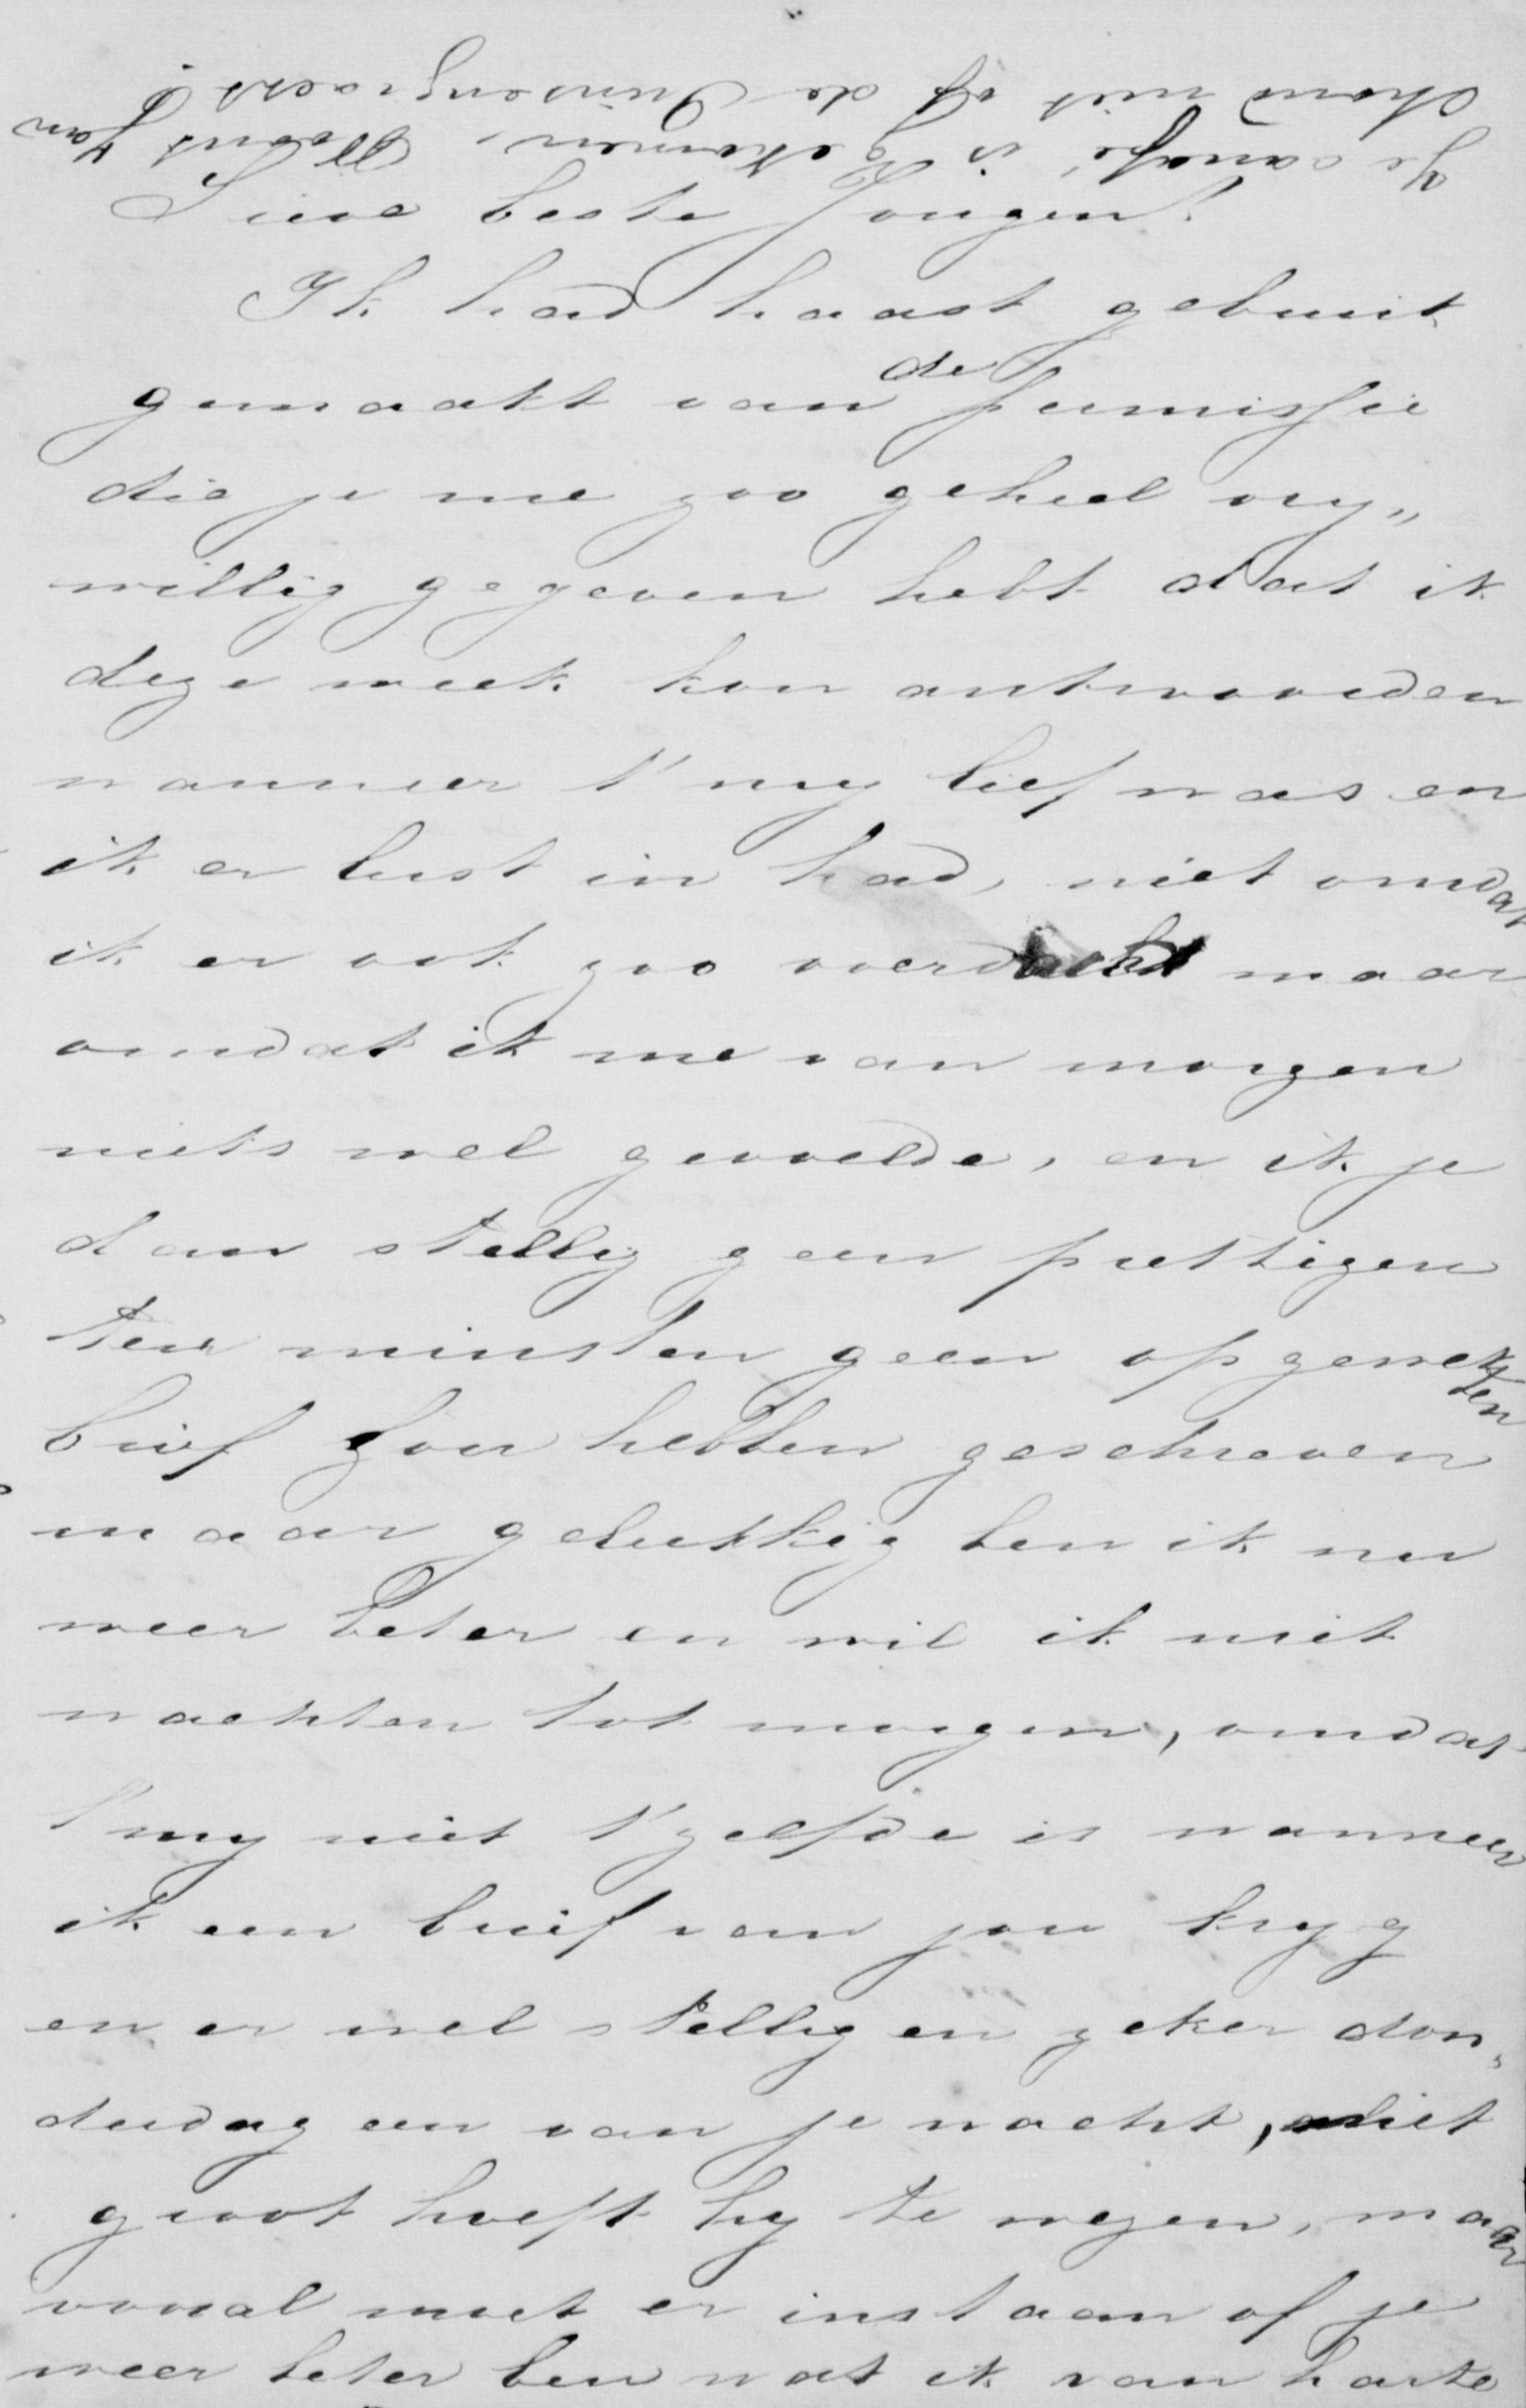 Je canapé is gekomen, Woont Jan
Lieve beste Jongen!
Ik had haast gebruit
gemaakt van de permissie
die je me zoo geheel vry„
willig gegeven hebt dat ik
deze week kon antwoorden
wanneer t' my lief was en
ik er lust in had, niet omdat
ik er ook zoo overdacht maar
omdat ik me van morgen
niets wel gevoelde, en ik je
dan stellig geen prettigen
ten minsten geen opgewekten
brief zou hebben geschreven
maar gelukkig ben ik nu
weer beter en wil ik niet
wachten tot morgen, omdat
t' my niet t'zelfde is wanneer
ik een brief van jou kryg
en er wel stellig en zeker don„
derdag een van je wacht, niet
groot hoeft hy te wezen, maar
vooral moet er instaan of je
weer beter ben wat ik van harte